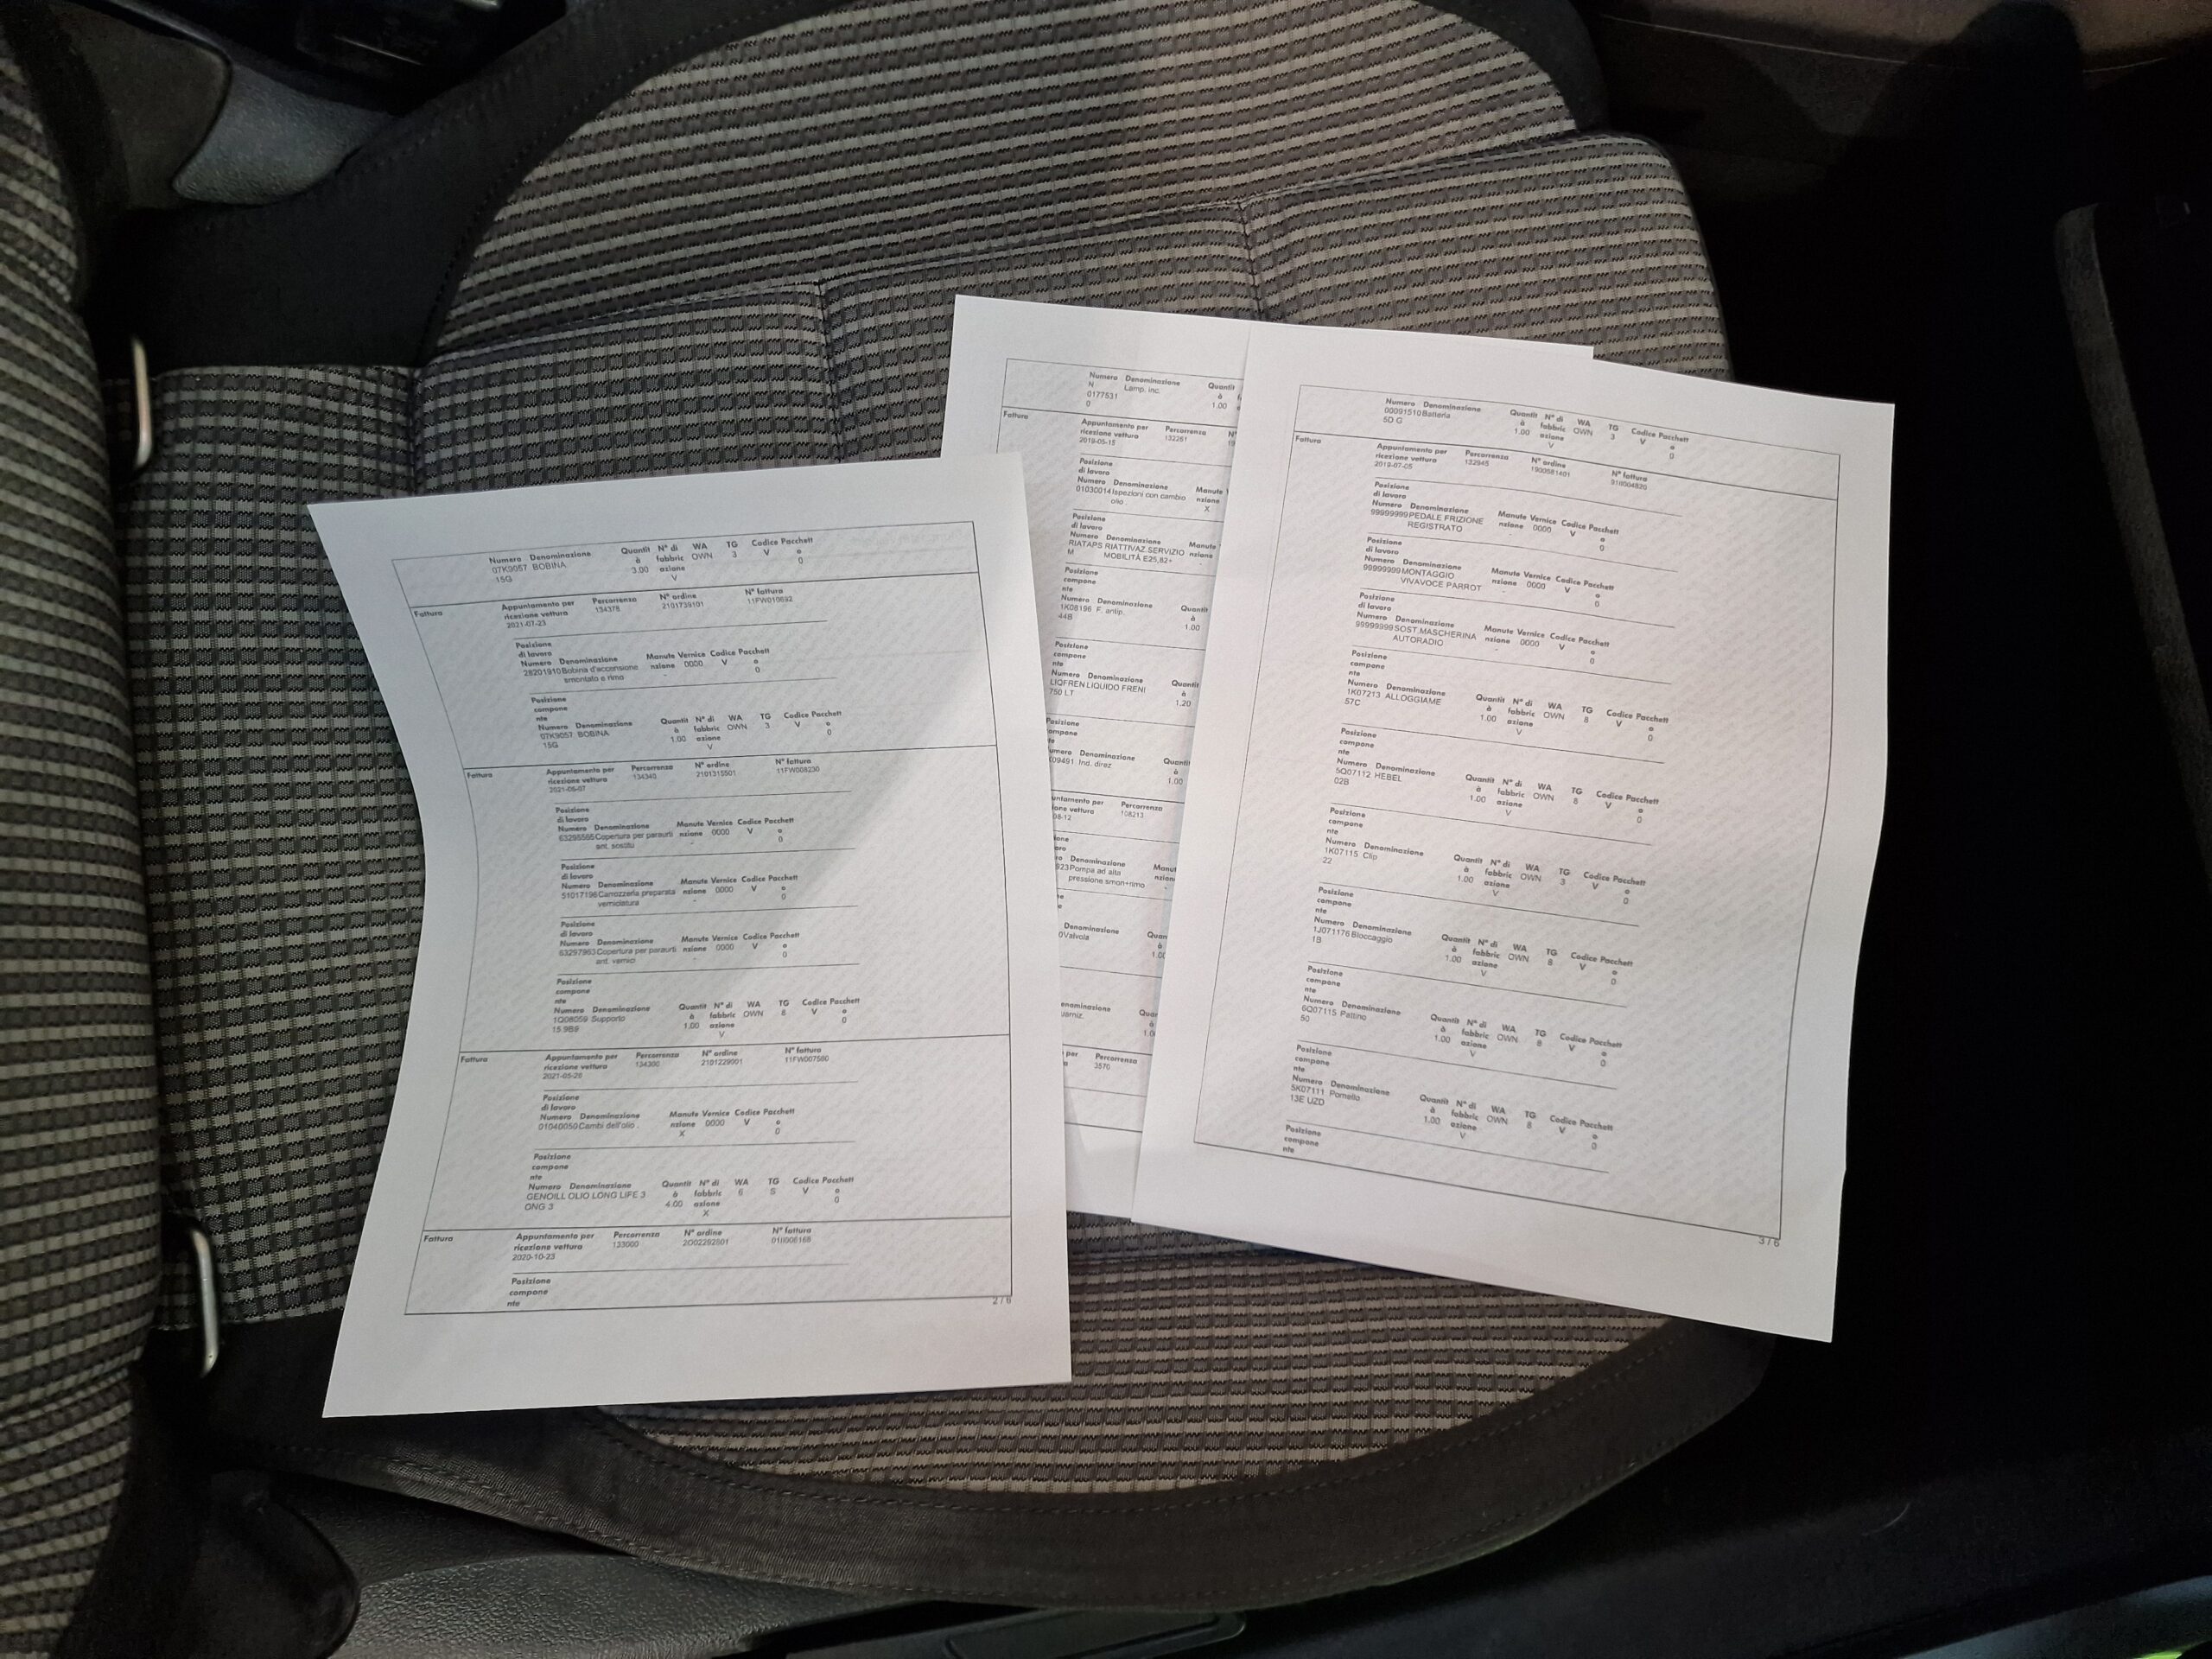 Numero Denominazione Quantit N° di WA TG Codice Pacchett
07K9057 BOBINA à fabbric OWN 3 V o
15G 3.00 azione 0
V
Fattura Appuntamento per Percorrenza N° ordine N° fattura
ricezione vettura 134378 2101739101 11FW010692
2021-07-23
Posizione
di lavoro
Numero Denominazione Manute Vernice Codice Pacchett
28201910 Bobina d'accensione nzione 0000 V o
smontato e rimo - 0
Posizione
compone
nte
Numero Denominazione Quantit N° di WA TG Codice Pacchett
07K9057 BOBINA à fabbric OWN 3 V o
15G 1.00 azione 0
V
Fattura Appuntamento per Percorrenza N° ordine N° fattura
ricezione vettura 134340 2101315501 11FW008230
2021-06-07
Posizione
di lavoro
Numero Denominazione Manute Vernice Codice Pacchett
63295565 Copertura per paraurti nzione 0000 V o
ant. sostitu - 0
Posizione
di lavoro
Numero Denominazione Manute Vernice Codice Pacchett
51017196 Carrozzeria preparata nzione 0000 V o
verniciatura - 0
Posizione
di lavoro
Numero Denominazione Manute Vernice Codice Pacchett
63297963 Copertura per paraurti nzione 0000 V o
ant. vernici - 0
Posizione
compone
nte
Numero Denominazione Quantit N° di WA TG Codice Pacchett
1Q08059 Supporto à fabbric OWN 8 V o
15 9B9 1.00 azione 0
V
Fattura Appuntamento per Percorrenza N° ordine N° fattura
ricezione vettura 134300 2101229001 11FW007580
2021-05-26
Posizione
di lavoro
Numero Denominazione Manute Vernice Codice Pacchett
01040050 Cambi dell'olio . nzione 0000 V o
X 0
Posizione
compone
nte
Numero Denominazione Quantit N° di WA TG Codice Pacchett
GENOILL OLIO LONG LIFE 3 à fabbric 6 S V o
ONG 3 4.00 azione 0
X
Fattura Appuntamento per Percorrenza N° ordine N° fattura
ricezione vettura 133000 2002292601 01II006168
2020-10-23
Posizione
compone
nte
2 / 6
Numero Denominazione Quantit
N Lamp. inc. à
0177531 1.00
0
Fattura Appuntamento per Percorrenza
ricezione vettura 132261
2019-05-15
Posizione
di lavoro
Numero Denominazione Manute
01030014 Ispezioni con cambio nzione
olio . X
Posizione
di lavoro
Numero Denominazione Manute
RIATAPS RIATTIVAZ.SERVIZIO nzione
M MOBILITÀ E25,82+ -
Posizione
compone
nte
Numero Denominazione Quantit
1K08196 F. antip. à
44B 1.00
Posizione
compone
nte
Numero Denominazione Quantit
LIQFREN LIQUIDO FRENI à
750 LT 1.20
Posizione
Denominazione Quantit
09491 Ind. direz. à
1.00
Percorrenza
08-12 108213
Denominazione
923 Pompa ad alta
pressione smon+rimo
Denominazione
0 Valvola
Percorrenza
3570
Numero Denominazione Quantit N° di WA TG Codice Pacchett
00091510 Batteria à fabbric OWN 3 V o
5D G 1.00 azione 0
V
Fattura Appuntamento per Percorrenza N° ordine N° fattura
ricezione vettura 132945 1900581401 91II004820
2019-07-05
Posizione
di lavoro
Numero Denominazione Manute Vernice Codice Pacchett
99999999 PEDALE FRIZIONE nzione 0000 V o
REGISTRATO - 0
Posizione
di lavoro
Numero Denominazione Manute Vernice Codice Pacchett
99999999 MONTAGGIO nzione 0000 V o
VIVAVOCE PARROT - 0
Posizione
di lavoro
Numero Denominazione Manute Vernice Codice Pacchett
99999999 SOST MASCHERINA nzione 0000 V o
AUTORADIO - 0
Posizione
compone
nte
Numero Denominazione Quantit N° di WA TG Codice Pacchett
1K07213 ALLOGGIAME à fabbric OWN 8 V o
57C 1.00 azione 0
V
Posizione
compone
nte
Numero Denominazione Quantit N° di WA TG Codice Pacchett
5Q07112 HEBEL à fabbric OWN 8 V o
02B 1.00 azione 0
V
Posizione
compone
nte
Numero Denominazione Quantit N° di WA TG Codice Pacchett
1K07115 Clip à fabbric OWN 3 V o
22 1.00 azione 0
V
Posizione
compone
nte
Numero Denominazione Quantit N° di WA TG Codice Pacchett
1J071176 Bloccaggio à fabbric OWN 8 V o
1B 1.00 azione 0
V
Posizione
compone
nte
Numero Denominazione Quantit N° di WA TG Codice Pacchett
6Q07115 Pattino à fabbric OWN 8 V o
50 1.00 azione 0
V
Posizione
compone
nte
Numero Denominazione Quantit N° di WA TG Codice Pacchett
5K07111 Pomello à fabbric OWN 8 V o
13E UZD 1.00 azione 0
V
Posizione
compone
nte
3 / 6